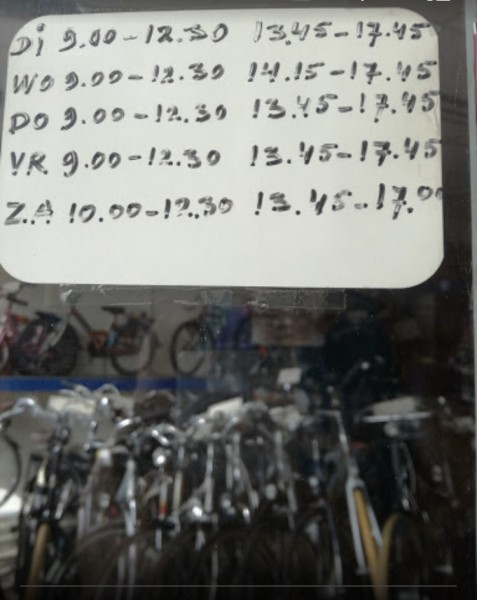 Di 9.00-12.30 13.45-17.45
WO 9.00-12.30 14.15-17.45
DO 9.00-12.30 13.45-17.45
VR 9.00-12.30 13.45-17.45
Z.A 10.00-12.30 13.45-17.00